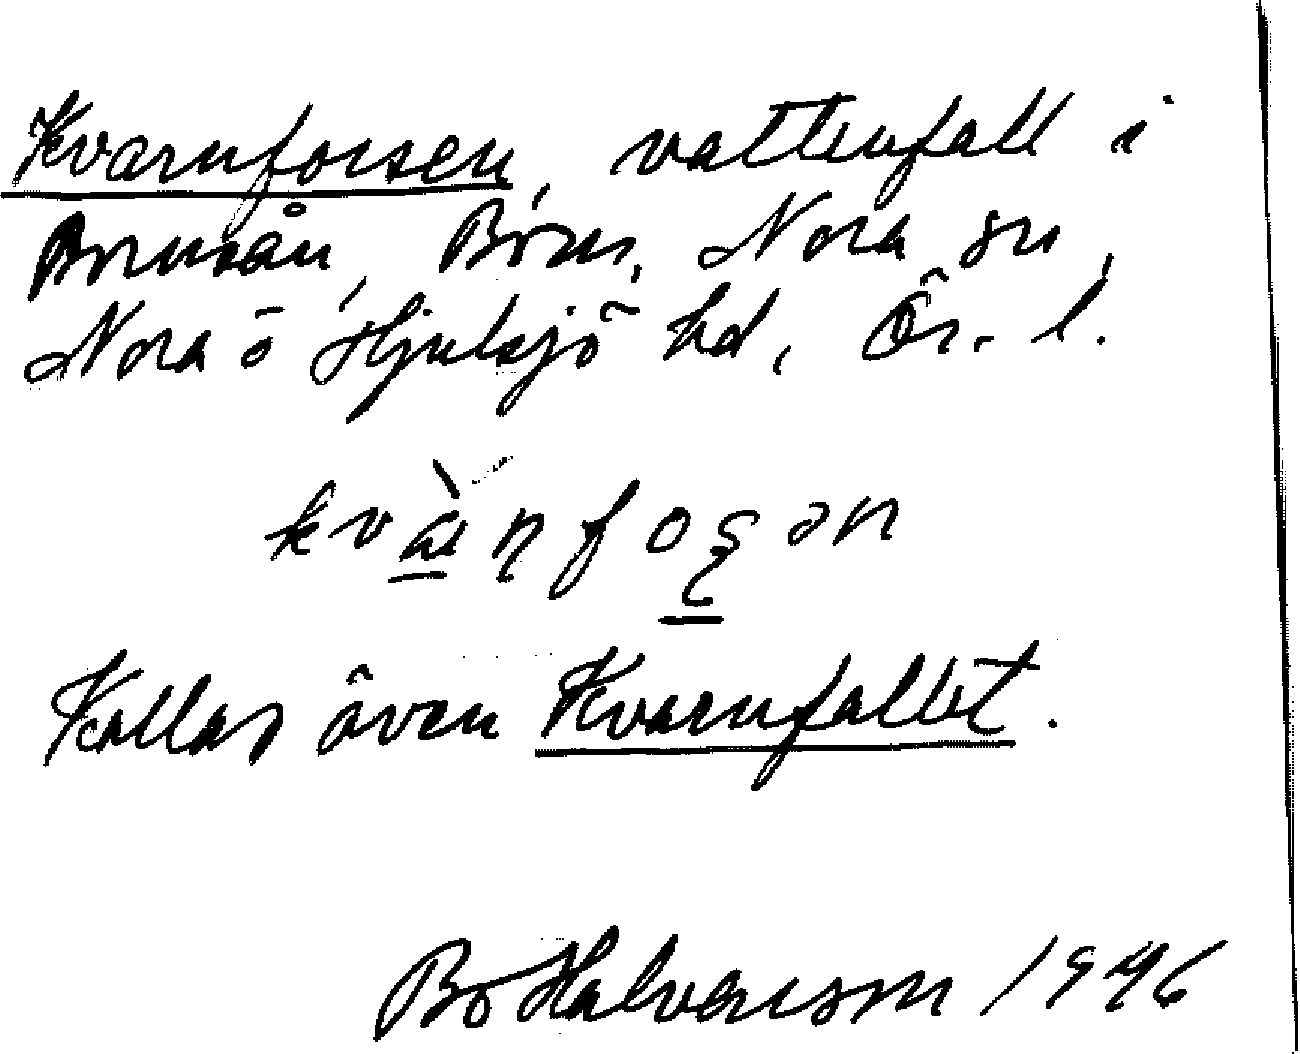 Kvarnforsen, vattenfall i
Bornsån, Born, Nora sn,
Nora o Hjulsjö hd, Ör. l.
Kallas även Kvarnfallet.
Bo Halvarson 1946